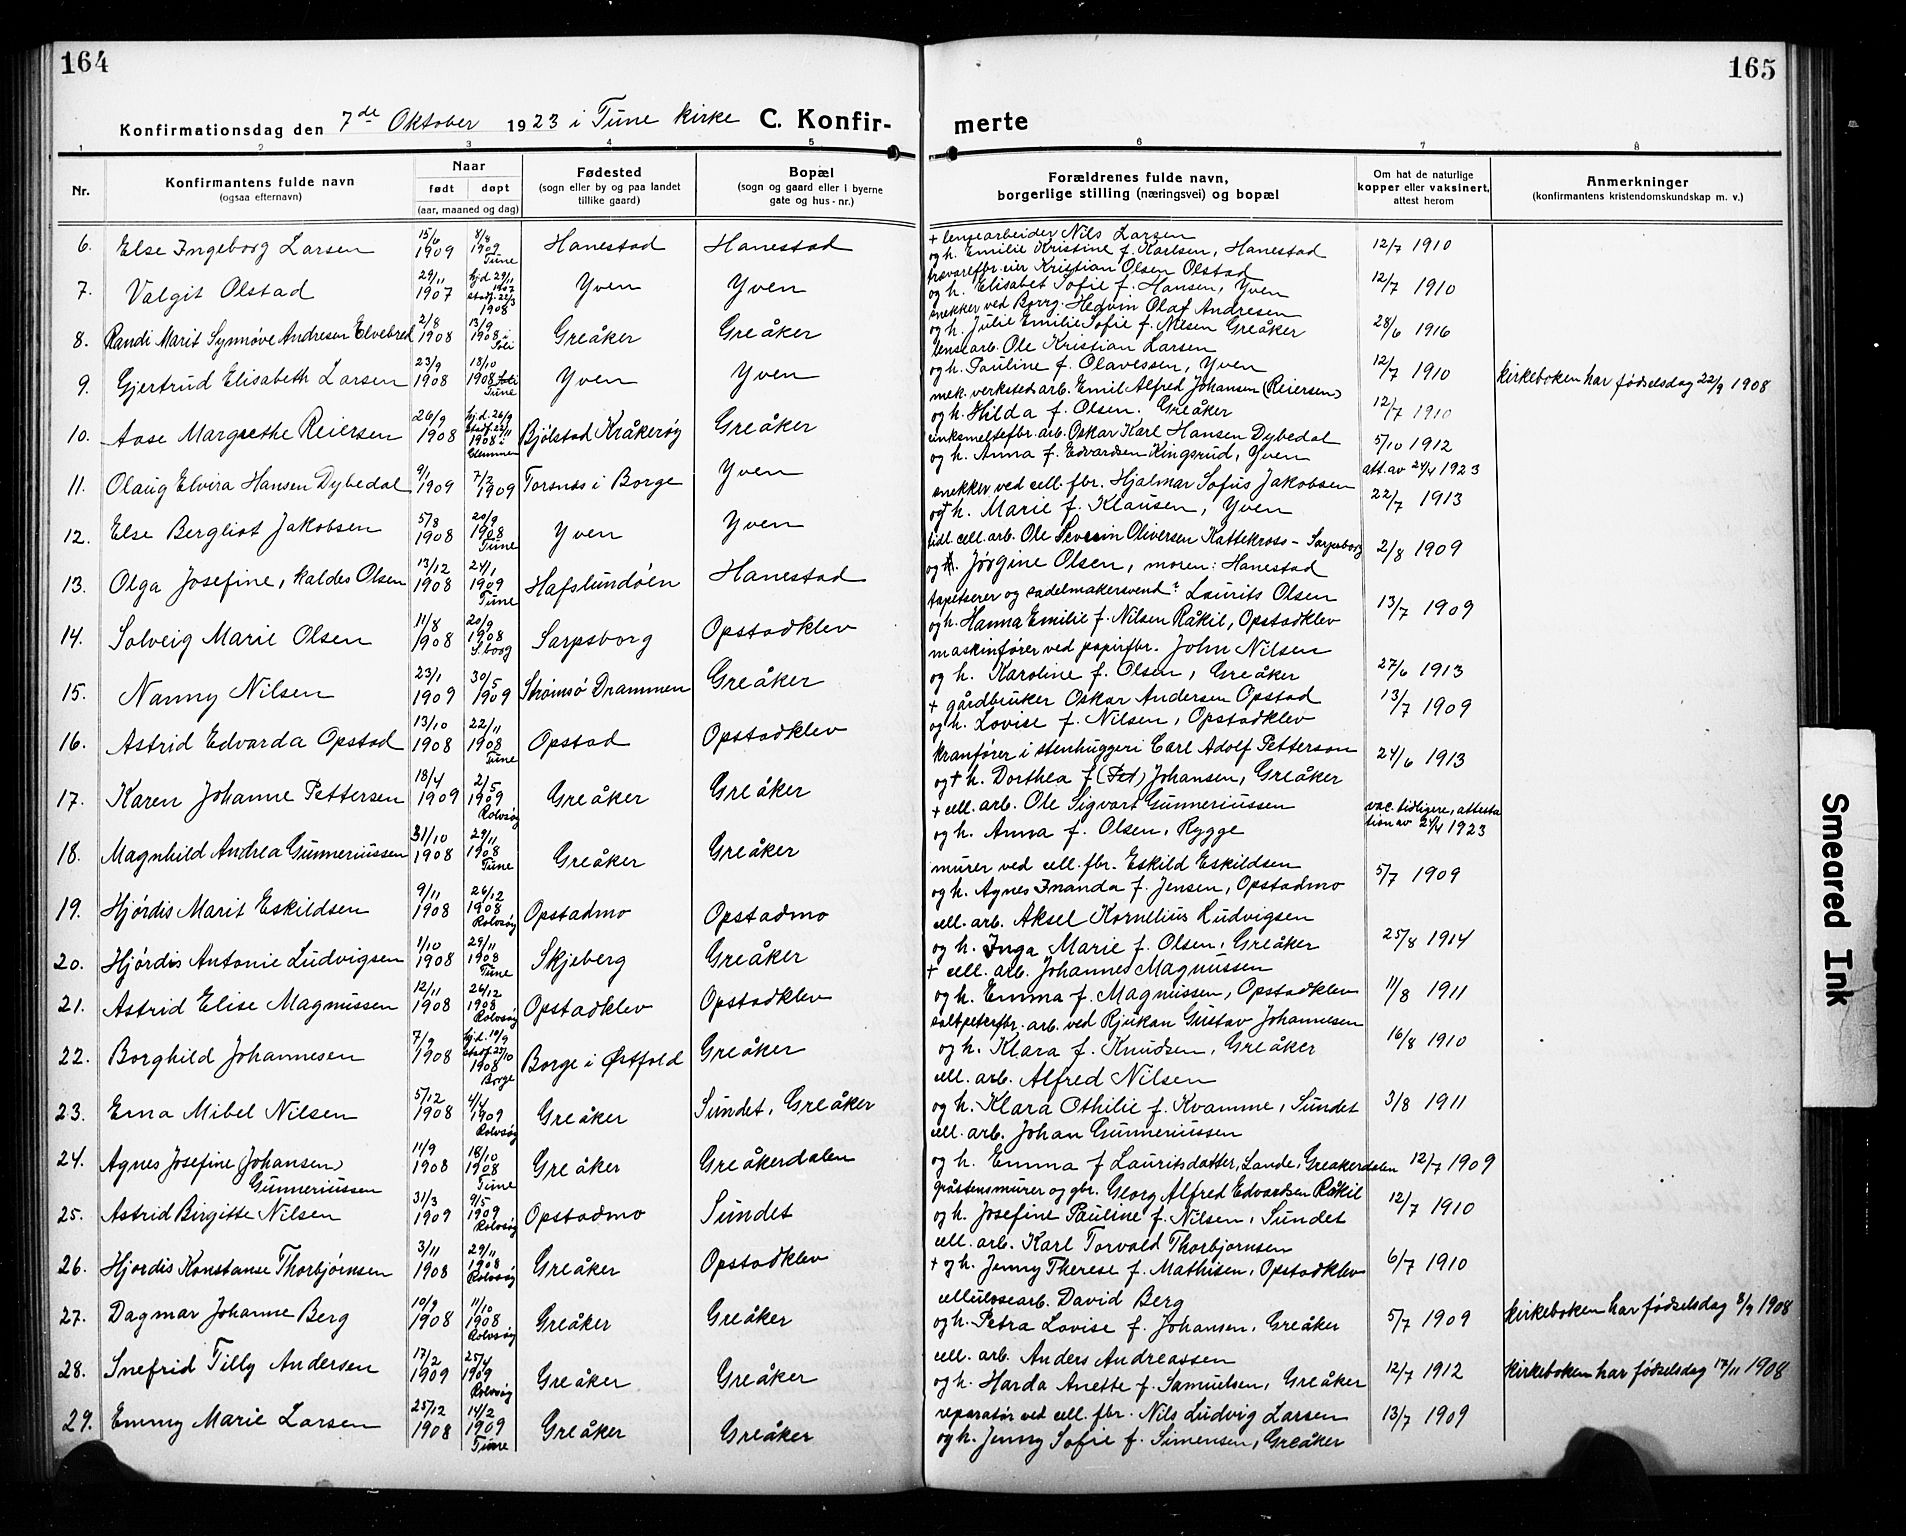 164
165
Konfirmationsdag den 7de Oktober 1923 i Tune kirke C. Konfir-
merte
1 2 3 4 5 6 7 8
Nr.
Konfirmantens fulde navn
(ogsaa efternavn)
Naar
født døpt
(aar, maaned og dag)
Fødested
(sogn eller by og paa landet
tillike gaard)
Bopæl
(sogn og gaard eller i byerne
gate og hus-nr.)
Forældrenes fulde navn,
borgerlige stilling (næringsvei) og bopæl
Om hat de naturlige
kopper eller vaksinert,
attest herom
Anmerkninger
(konfirmantens kristendomskundskap m. v.)
6. Else Ingeborg Larsen 15/6 1909 8/8 1909 Tune Hanestad Hanestad
+ lensearbeider Nils Larsen
og h. Emilie Kristine f. Karlsen, Hanestad 12/7 1910
7. Valgit Olstad 29/11 1907 hjd. 29/11 1907 stadf. 22/3 1908 Yven Yven
trævarefbr. eier Kristian Olsen Olstad
og h. Elisabet Sofie f. Hansen, Yven 12/7 1910
8. Randi Marit Synnøve Andresen Elvebrek 2/8 1908 13/9 1908 i Soli Greåker Greåker
snekker ved Borrg. Hedvin Olaf Andresen
og h. Julie Emilie Sofie f. Nilsen Greåker 28/6 1916
9. Gjertrud Elisabeth Larsen 23/9 1908 18/10 1908 Soli Tune Yven Yven
lensearb. Ole Kristian Larsen
og h. Pauline f. Olavessen, Yven 12/7 1910 kirkeboken har fødselsdag 22/9 1908
10. Aase Margrethe Reiersen 26/9 1908 hj.d. 26/9 stadf. 22/11 1908 Glemmen Bjølstad Kråkerøy Greåker
mek. verksted arb. Emil Alfred Johansen (Reiersen)
og h. Hilda f. Olsen. Greåker 12/7 1910
11. Olaug Elvira Hansen Dybedal 9/1 1909 7/2 1909 Torsnæs i Borge Yven
sinksmeltefbr. arb. Oskar Karl Hansen Dybedal 5/10 1912
og h. Anna f. Edvardsen Kingsrud, Yven att. av 24/4 1923
12. Else Bergliot Jakobsen 5/8 1908 20/9 1908 Tune Yven Yven
snekker ved cell. fbr. Hjalmar Sofus Jakobsen
og + h. Marie f. Klausen, Yven 22/7 1913
13. Olga Josefine, kaldes Olsen 13/12 1908 24/1 1909 Tune Hafslundöen Hanestad
tidl. cell. arb. Ole Severin Oliversen Kattekross - Sarpsborg
og Jørgine Olsen, moren: Hanestad 2/8 1909
14. Solveig Marie Olsen 11/8 1908 20/9 1908 S.borg Sarpsborg Opstadklev
tapetserer og sadelmakersvend Laurits Olsen
og h. Hanna Emilie f. Nilsen Råkil, Opstadklev 13/7 1909
15. Nanny Nilsen 23/1 1909 30/5 1909 Strømsö Drammen Greåker
maskinfører ved papirfbr. John Nilsen
og h. Karoline f. Olsen, Greåker 27/6 1913
16. Astrid Edvarda Opstad 13/10 1908 22/11 1908 Tune Opstad Opstadklev
+ gårdbruker Oskar Andersen Opstad
og h. Lovise f. Nilsen, Opstadklev 13/7 1909
17. Karen Johanne Pettersen 18/4 1909 2/5 1909 Rolvsøy Greåker Greåker
kranfører i stenhuggeri Carl Adolf Petterson
og + h. Dorthea f (Pet) Johansen, Greåker 24/6 1913
18. Magnhild Andrea Gunneriussen 31/10 1908 29/11 1908 Tune Greåker Greåker
+ cell. arb. Ole Sigvart Gunneriussen vac. tidligere, attesta
og h. Anna f. Olsen, Rygge tion av 24/4 1923
19. Hjördis Marit Eskildsen 9/11 1908 26/12 1908 Rolvsøy Opstadmo Opstadmo
murer ved cell. fbr. Eskild Eskildsen
og h. Agnes Inanda f. Jensen, Opstadmo 5/7 1909
20. Hjördis Antonie Ludvigsen 1/10 1908 29/11 1908 Tune Skjeberg Greåker
cell. arb. Aksel Kornelius Ludvigsen
og h. Inga Marie f. Olsen, Greåker 25/8 1914
21. Astrid Elise Magnussen 12/11 1908 26/12 1908 Rolvsøy Opstadklev Opstadklev
+ cell. arb. Johannes Magnussen
og h. Emma f. Magnussen, Opstadklev 11/8 1911
22. Borghild Johannesen 7/9 1908 hj.d. 19/9 stadf. 25/10 1908 Borge Borge i Østfold Greåker
saltpeterfbr. arb. ved Rjukan Gustav Johannesen
og h. Klara f. Knudsen, Greåker 16/8 1910
23. Erna Mibel Nilsen 5/12 1908 4/4 1909 Rolvsøy Greåker Sundet, Greåker
cell. arb. Alfred Nilsen
og h. Klara Othilie f. Kvamme, Sundet 3/8 1911
24. Agnes Josefine (Johansen)
Gunneriussen 11/9 1908 18/10 1908 Tune Greåker Greåkerdalen
cell. arb. Johan Gunneriussen
og h. Emma f Lauritsdatter, Lande, Greakerdalen 12/7 1909
25. Astrid Birgitte Nilsen 31/3 1909 9/5 1909 Rolvsøy Opstadmo Sundet
gråstensmurer og gbr. Georg Alfred Edvardsen Råkil
og h. Josefine Pauline f. Nilsen, Sundet 12/7 1910
26. Hjördis Konstanse Thorbjörnsen 3/11 1908 29/11 1908 Rolvsøy Greåker Opstadklev
cell. arb. Karl Torvald Thorbjørnsen
+ og h. Jenny Therese f. Mathisen, Opstadklev 6/7 1910
27. Dagmar Johanne Berg 10/9 1908 11/10 1908 Rolvsøy Greåker Greåker
cellulosearb. David Berg
og h. Petra Lovise f. Johansen, Greåker 5/7 1909 kirkeboken har fødselsdag 8/9 1908
28. Snefrid Tilly Andersen 17/2 1909 25/4 1909 Rolvsøy Greåker Greåker
cell. arb. Anders Andreassen
og h. Harda Anette f. Samuelsen, Greåker 12/7 1912 kirkeboken har fødselsdag 17/11 1908
29. Emmy Marie Larsen 25/12 1908 14/2 1909 Tune Greåker Greåker
reparatør ved cell. fbr. Nils Ludvig Larsen
og h. Jenny Sofie f. Simensen, Greåker 13/7 1909
Smeared Ink